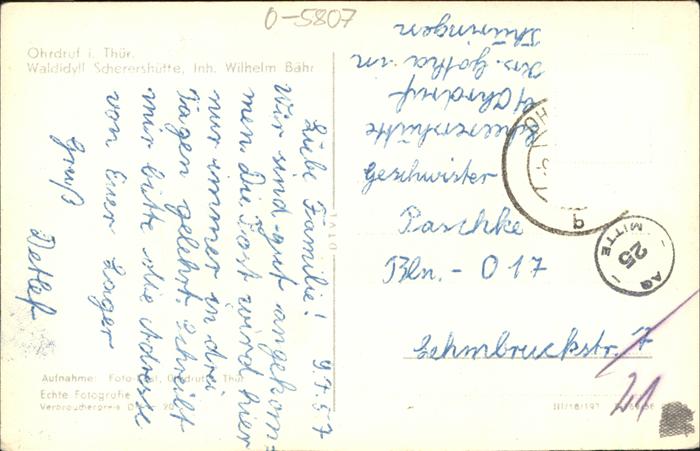 0-5807
Ohrdruf i. Thür.
Waldidyll Scherershütte, Inh. Wilhelm Bähr
Liebe Familie! 9.7.57
Wir sind gut angekom=
men. Die Post wird hier
nur immer in drei
Tagen geleert. Schreibt
mir bitte die Adresse
von Euer Lager
Gruß
Detlef
Scherershütte
Ohrdruf
Krs. Gotha in
Thüringen
Geschwister
Paschke
Bln. - O 17
Lehmbruckstr. 7
21
MITTE
25
Aufnahme: Foto
Echte Fotografie
Verbraucherpreis
III/18/197